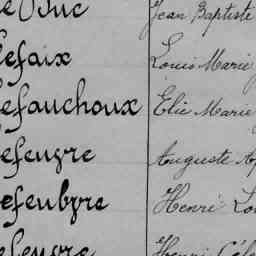 e Duc Jean Baptiste
Lefaix Louis Marie
Lefauchoux Elie Marie
Lefeuvre Auguste
Lefeubvre Henri
Lefeuvre Henri